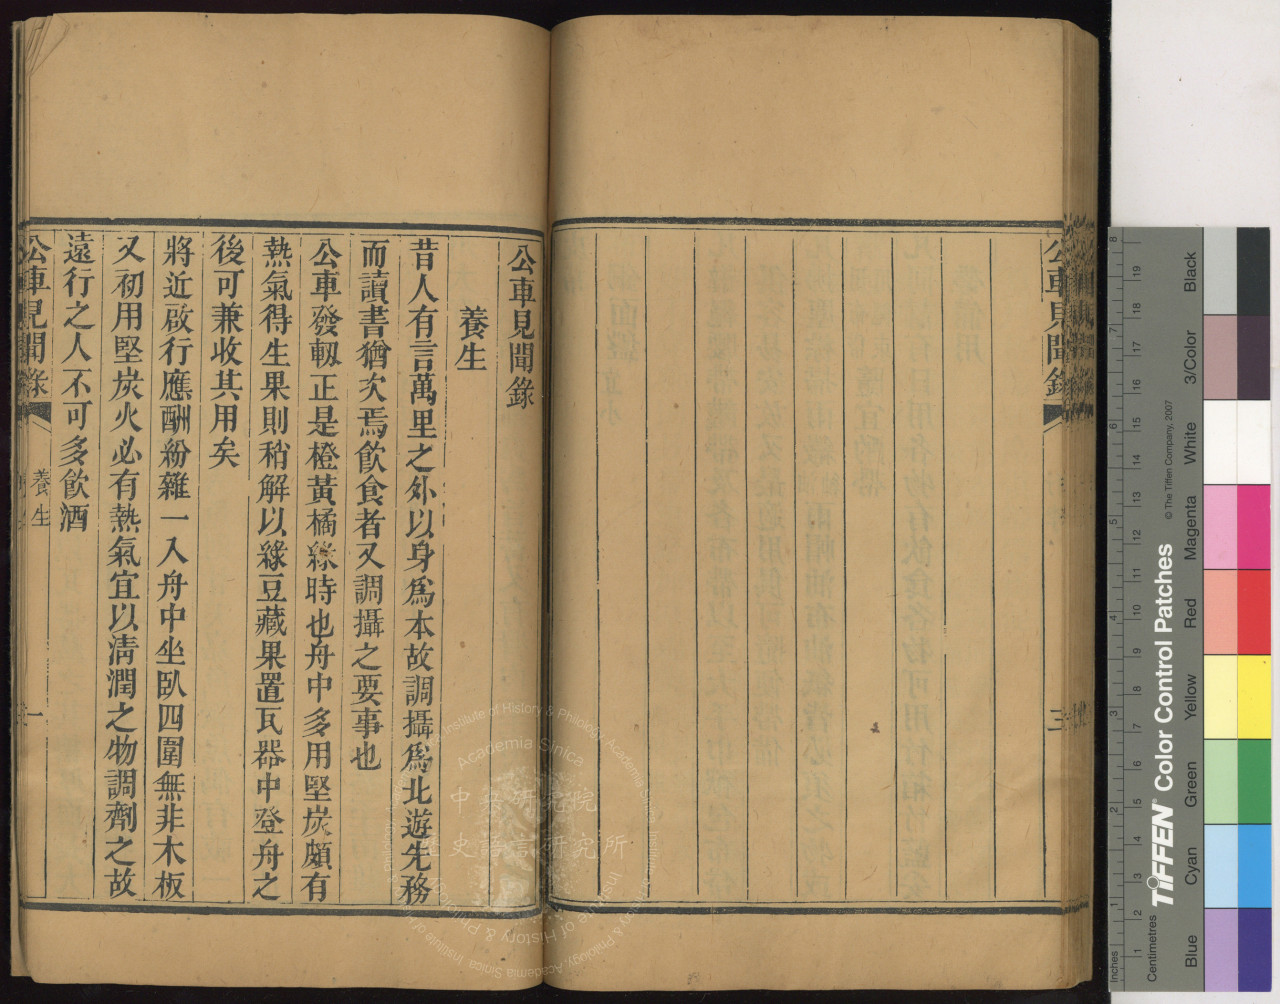 公車見聞錄
三
公車見聞錄
養生
昔人有言萬里之外以身爲本故調攝爲北遊先務
而讀書猶次焉飲食者又調攝之要事也
公車發軔正是橙黃橘綠時也舟中多用堅炭頗有
熱氣得生果則稍解以綠豆藏果置瓦器中登舟之
後可兼收其用矣
將近啟行應酬紛雜一入舟中坐臥四圍無非木板
又初用堅炭火必有熱氣宜以淸潤之物調劑之故
遠行之人不可多飲酒
公車見聞錄
養生
一
中央研究院
歷史語言研究所
Institute of History & Philology, Academia Sinica
Inches
Centimetres
TIFFEN® Color Control Patches
© The Tiffen Company, 2007
Blue
Cyan
Green
Yellow
Red
Magenta
White
3/Color
Black